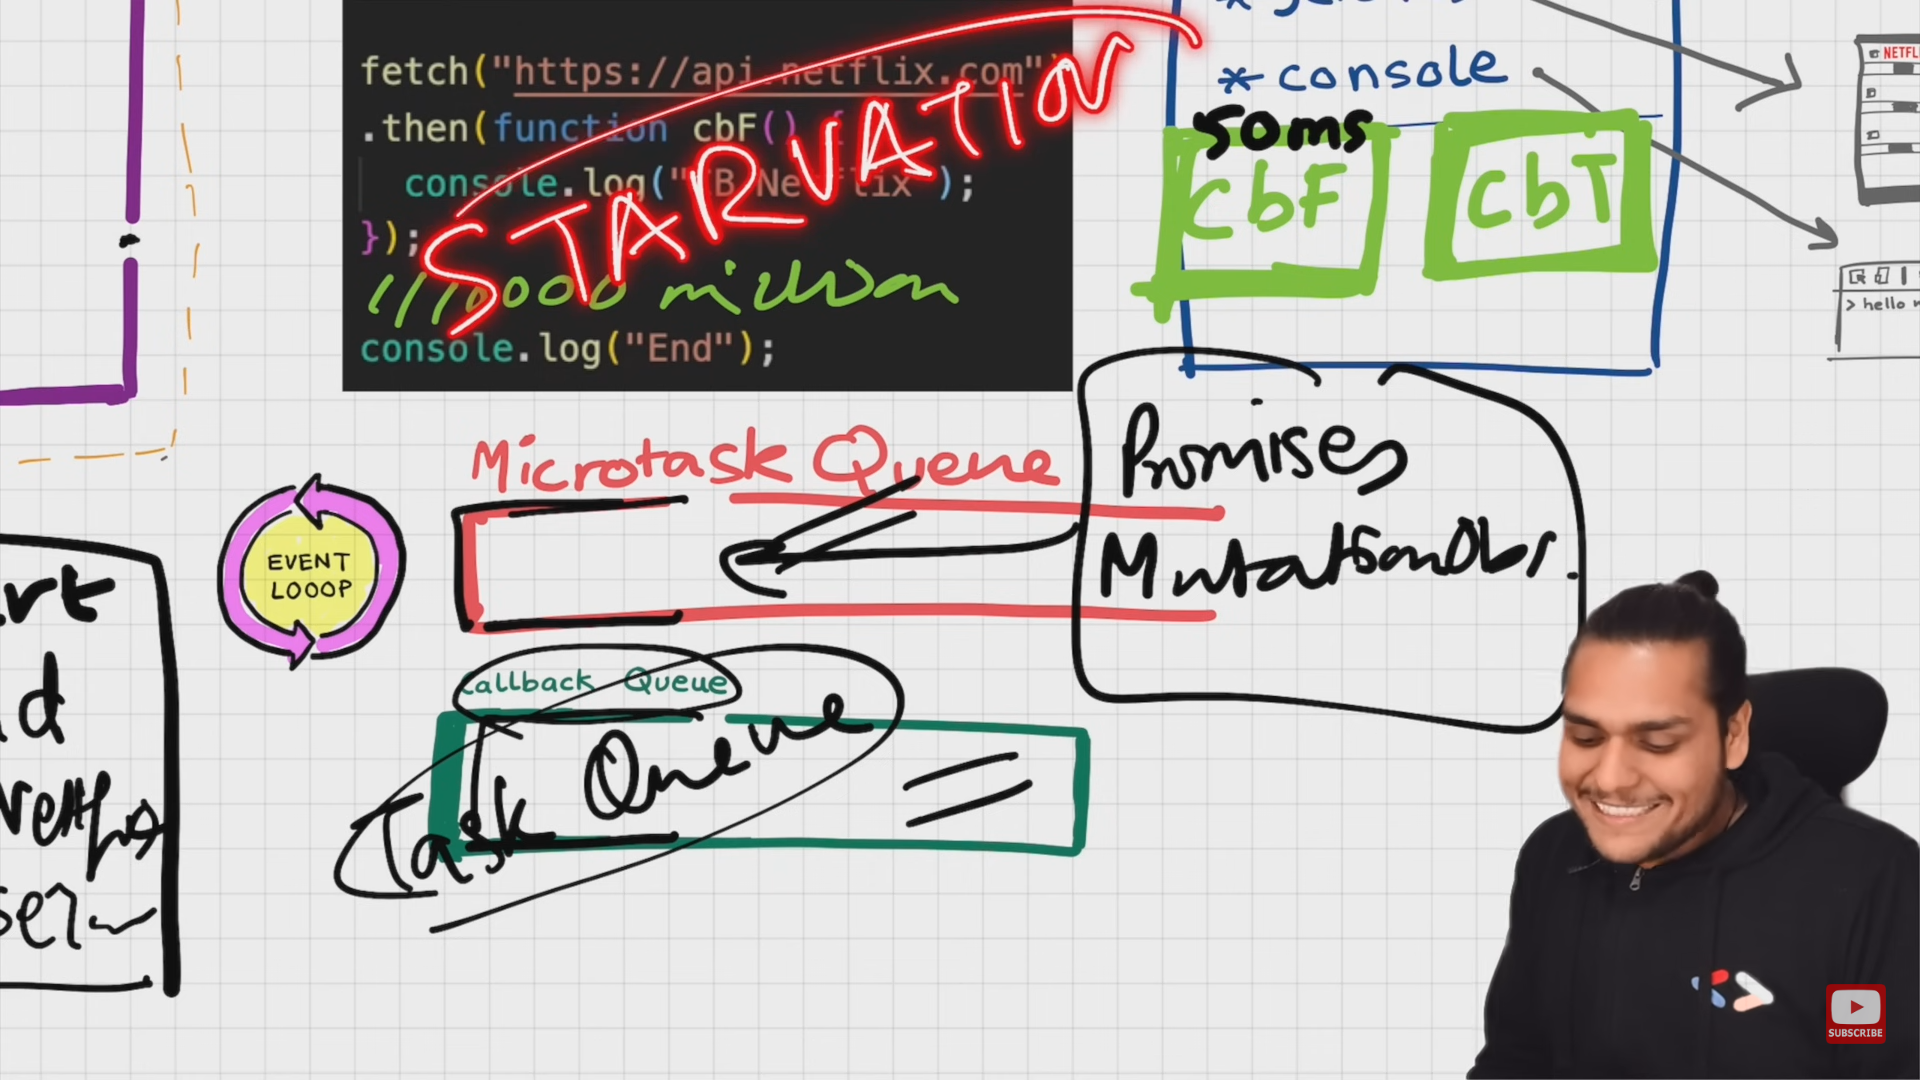 fetch("https://api.netflix.com")
.then(function cbF() {
console.log("CB Netflix");
});
STARVATION
// 10000 million
console.log("End");
* console
50ms
CbF
CbT
NETFL
> hello
Microtask Queue
Promises
MutationObs.
EVENT
LOOOP
Callback Queue
Task Queue
SUBSCRIBE